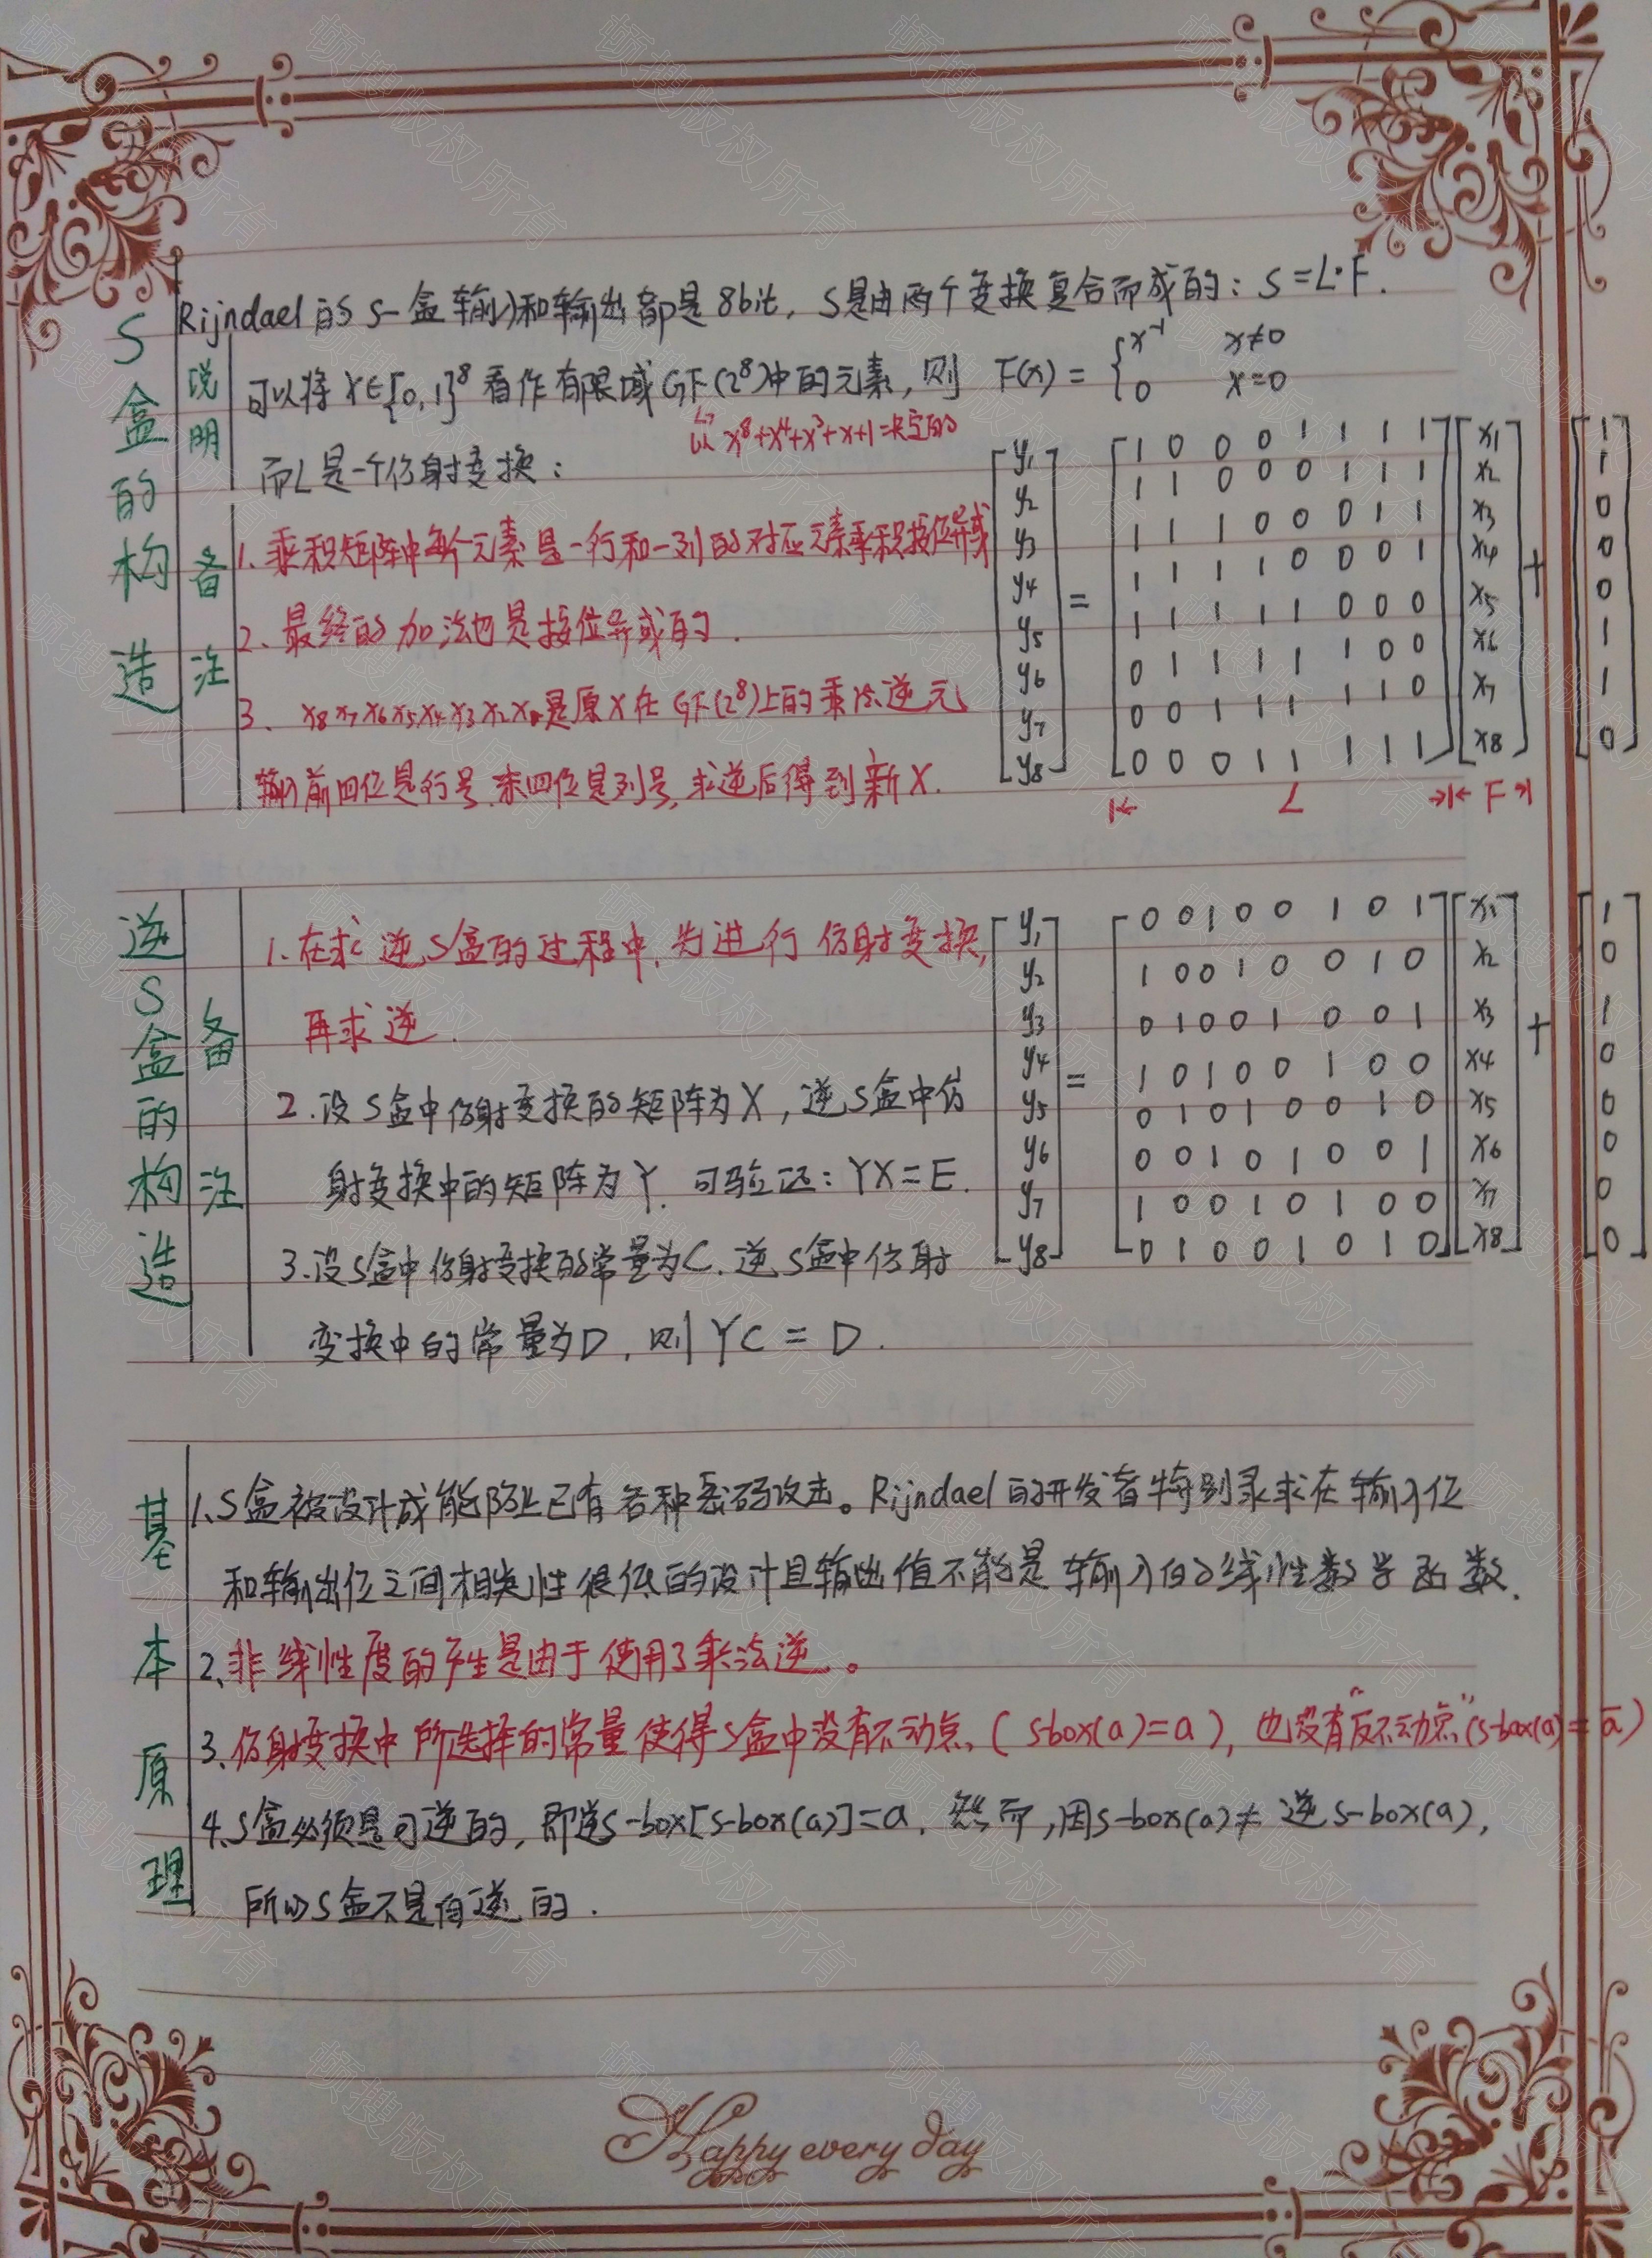 S盒的构造
说明
Rijndael的S-盒输入和输出都是8bit，S是由两个变换复合而成的：S=L·F.
可以将x∈{0,1}⁸看作有限域GF(2⁸)中的元素，则 F(x) = { x⁻¹ x≠0
0 x=0
以x⁸+x⁴+x³+x+1=决定的
而L是一个仿射变换：
备注
1. 乘积矩阵中每个元素是一行和一列的对应元素乘积按位异或
2. 最终的加法也是按位异或的.
3. x8x7x6x5x4x3x2x1是原X在GF(2⁸)上的乘法逆元
输入前四位是行号.末四位是列号,求逆后得到新X.
y1 1 0 0 0 1 1 1 1 x1 1
y2 1 1 0 0 0 1 1 1 x2 1
y3 1 1 1 0 0 0 1 1 x3 0
y4 = 1 1 1 1 0 0 0 1 x4 + 0
y5 1 1 1 1 1 0 0 0 x5 0
y6 0 1 1 1 1 1 0 0 x6 1
y7 0 0 1 1 1 1 1 0 x7 1
y8 0 0 0 1 1 1 1 1 x8 0
L F
逆S盒的构造
备注
1. 在求逆S盒的过程中,先进行仿射变换,
再求逆.
2. 设S盒中仿射变换的矩阵为X，逆S盒中仿
射变换中的矩阵为Y. 可验证：YX=E.
3. 设S盒中仿射变换的常量为C. 逆S盒中仿射
变换中的常量为D，则YC = D.
y1 0 0 1 0 0 1 0 1 x1 1
y2 1 0 0 1 0 0 1 0 x2 0
y3 0 1 0 0 1 0 0 1 x3 1
y4 = 1 0 1 0 0 1 0 0 x4 + 0
y5 0 1 0 1 0 0 1 0 x5 0
y6 0 0 1 0 1 0 0 1 x6 0
y7 1 0 0 1 0 1 0 0 x7 0
y8 0 1 0 0 1 0 1 0 x8 0
基本原理
1. S盒被设计成能防止已有各种密码攻击。Rijndael的开发者特别寻求在输入位
和输出位之间相关性很低的设计且输出值不能是输入的线性数学函数.
2. 非线性度的产生是由于使用了乘法逆。
3. 仿射变换中所选择的常量使得S盒中没有不动点（sbox(a)=a），也没有“反不动点”(s-box(a)=ā)
4. S盒必须是可逆的，即逆s-box[s-box(a)]=a. 然而,因s-box(a)≠逆s-box(a),
所以S盒不是自逆的.
Happy every day
顿搜版权所有